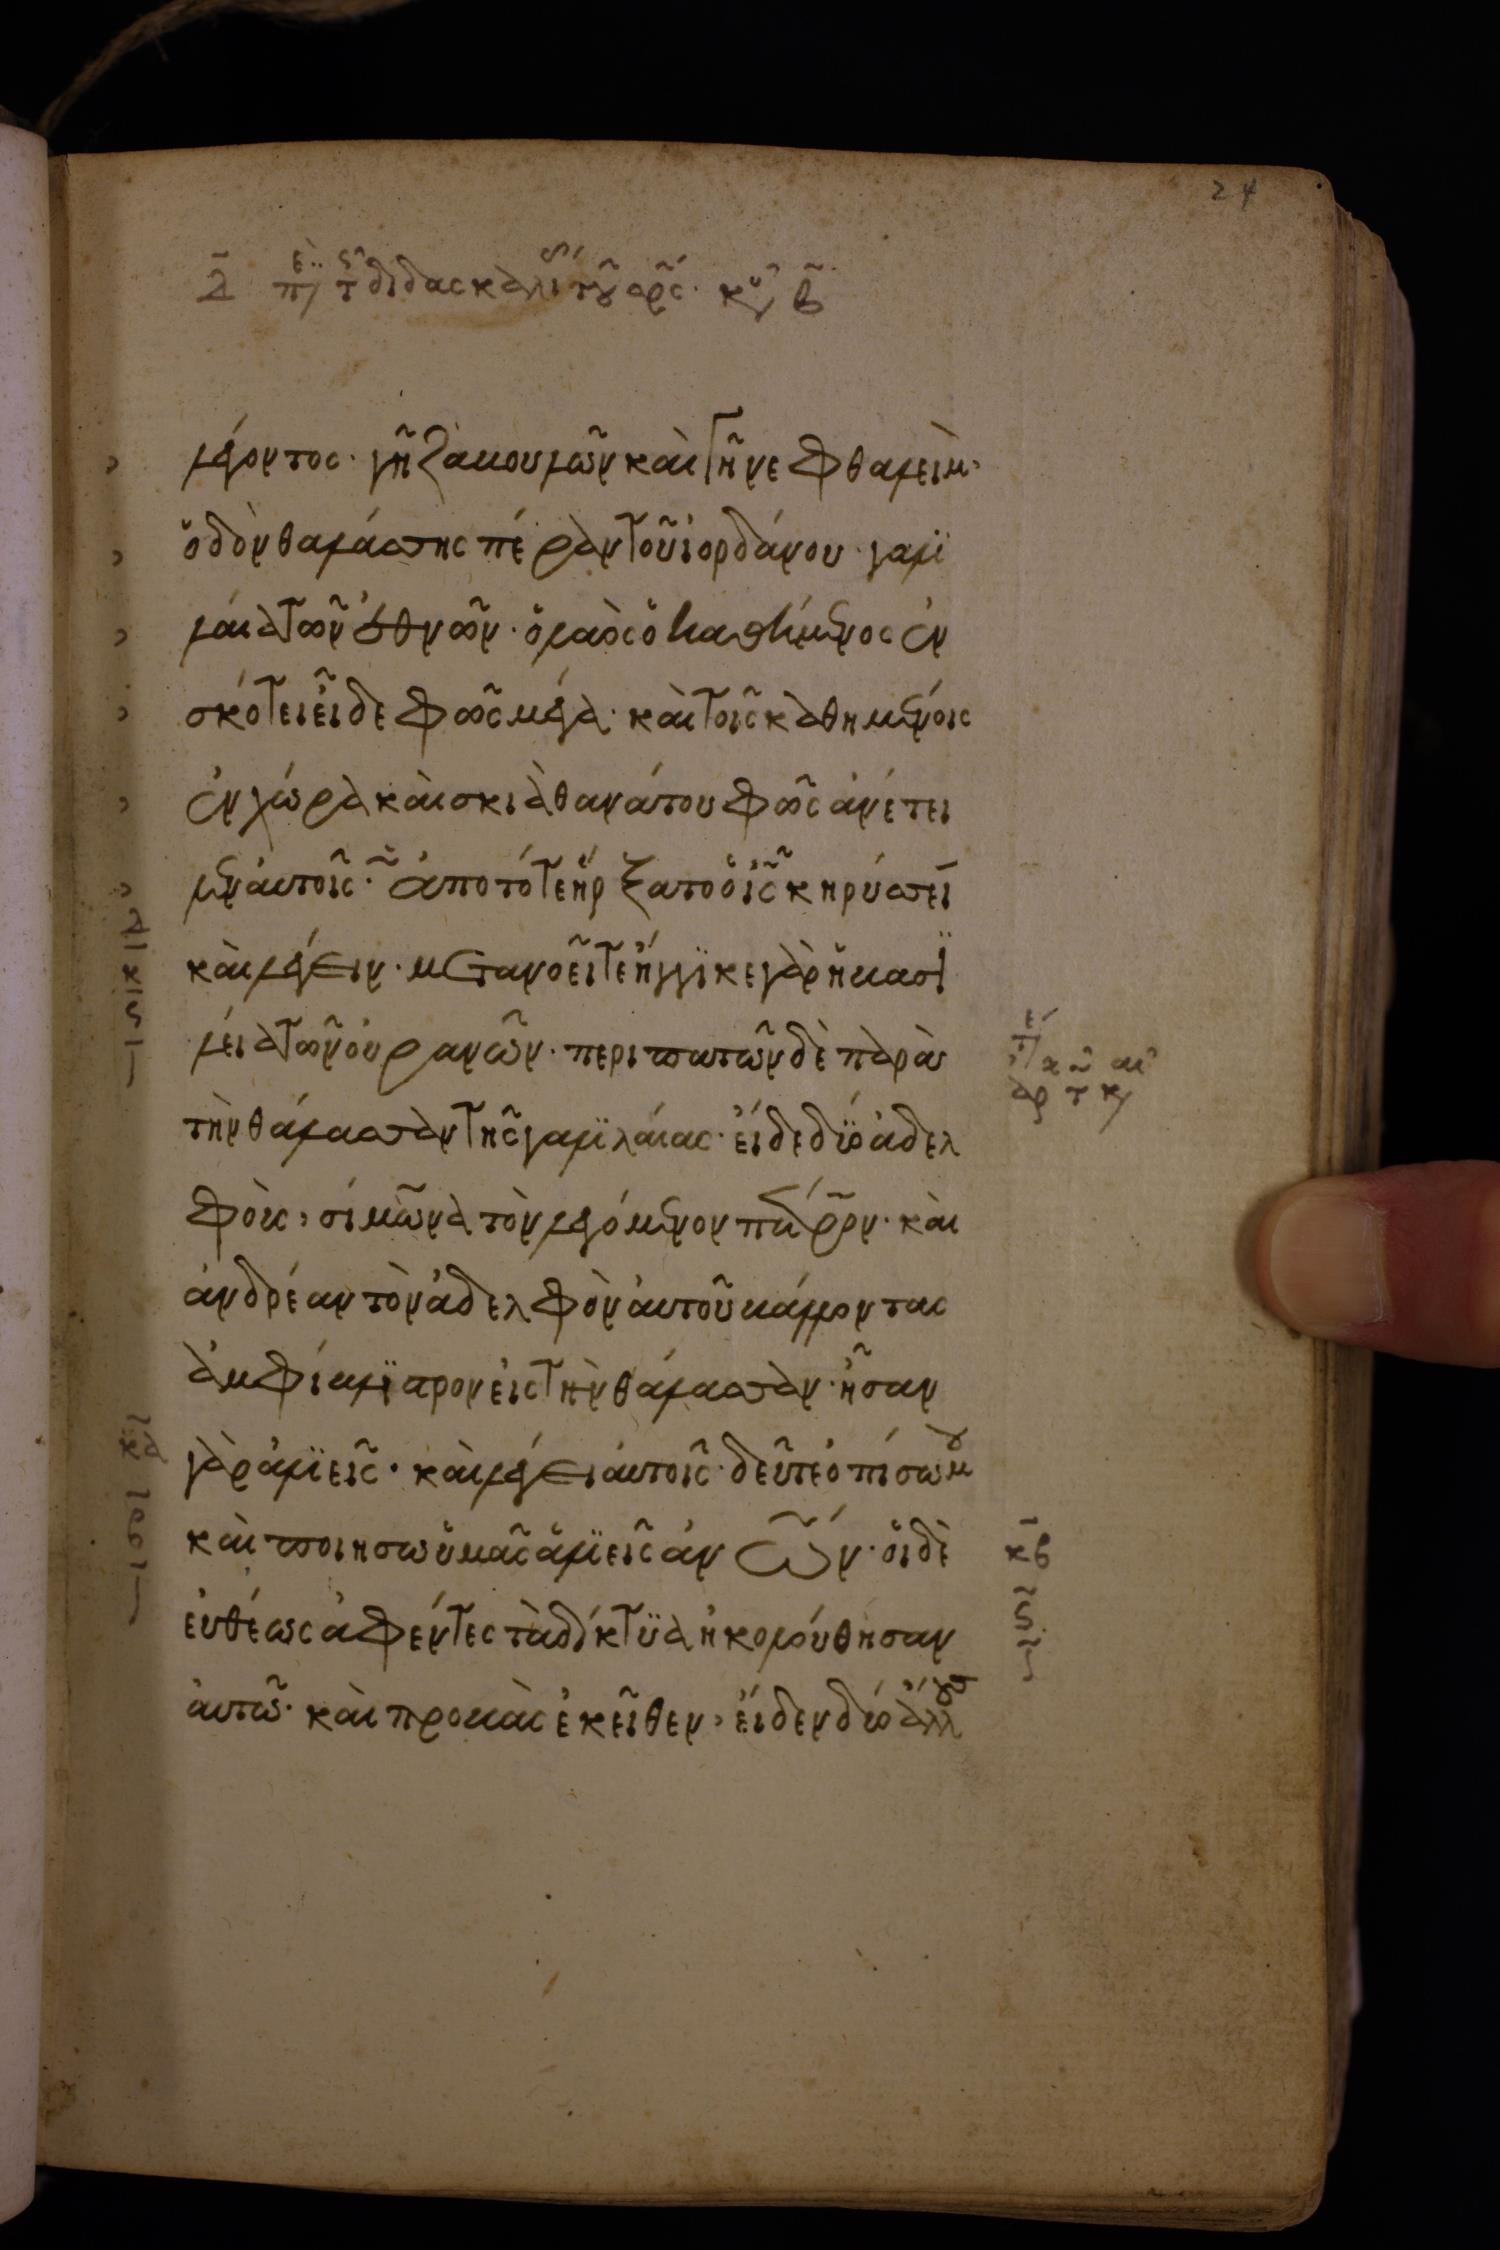 24
λέγοντος· γῆ ζαβουλῶν καὶ γῆ νεφθαλείμ·
ὁδὸν θαλάσσης πέραν τοῦ ἰορδάνου· γαλι
λαία τῶν ἐθνῶν· ὁ λαὸς ὁ καθήμενος ἐν
σκότει εἶδε φῶς μέγα· καὶ τοῖς καθημένοις
ἐν χώρα καὶ σκιὰ θανάτου φῶς ἀνέτει
λεν αὐτοῖς· ἀπο τότε ἤρξατο ὁ ις κηρύσσειν
καὶ λέγειν· μετανοεῖτε ἤγγικε γὰρ ἡ βασι
λεία τῶν οὐρανῶν· περιπατῶν δὲ παρὰ
τὴν θάλασσαν τῆς γαλιλαίας· εἶδε δύο ἀδελ
φοὺς, σίμωνα τὸν λεγόμενον πέτρον· καὶ
ἀνδρέαν τὸν ἀδελφὸν αὐτοῦ βάλλοντας
ἀμφίβληστρον εἰς τὴν θάλασσαν· ἦσαν
γὰρ ἁλιεῖς· καὶ λέγει αὐτοῖς· δεῦτε ὀπίσω μου
καὶ ποιησω ὑμᾶς ἁλιεῖς ἀνων· οἱ δὲ
κβ
εὐθέως ἀφέντες τὰ δίκτυα ἠκολούθησαν
αὐτῶ· καὶ προβὰς ἐκεῖθεν, εἶδεν δύο ἄλλους